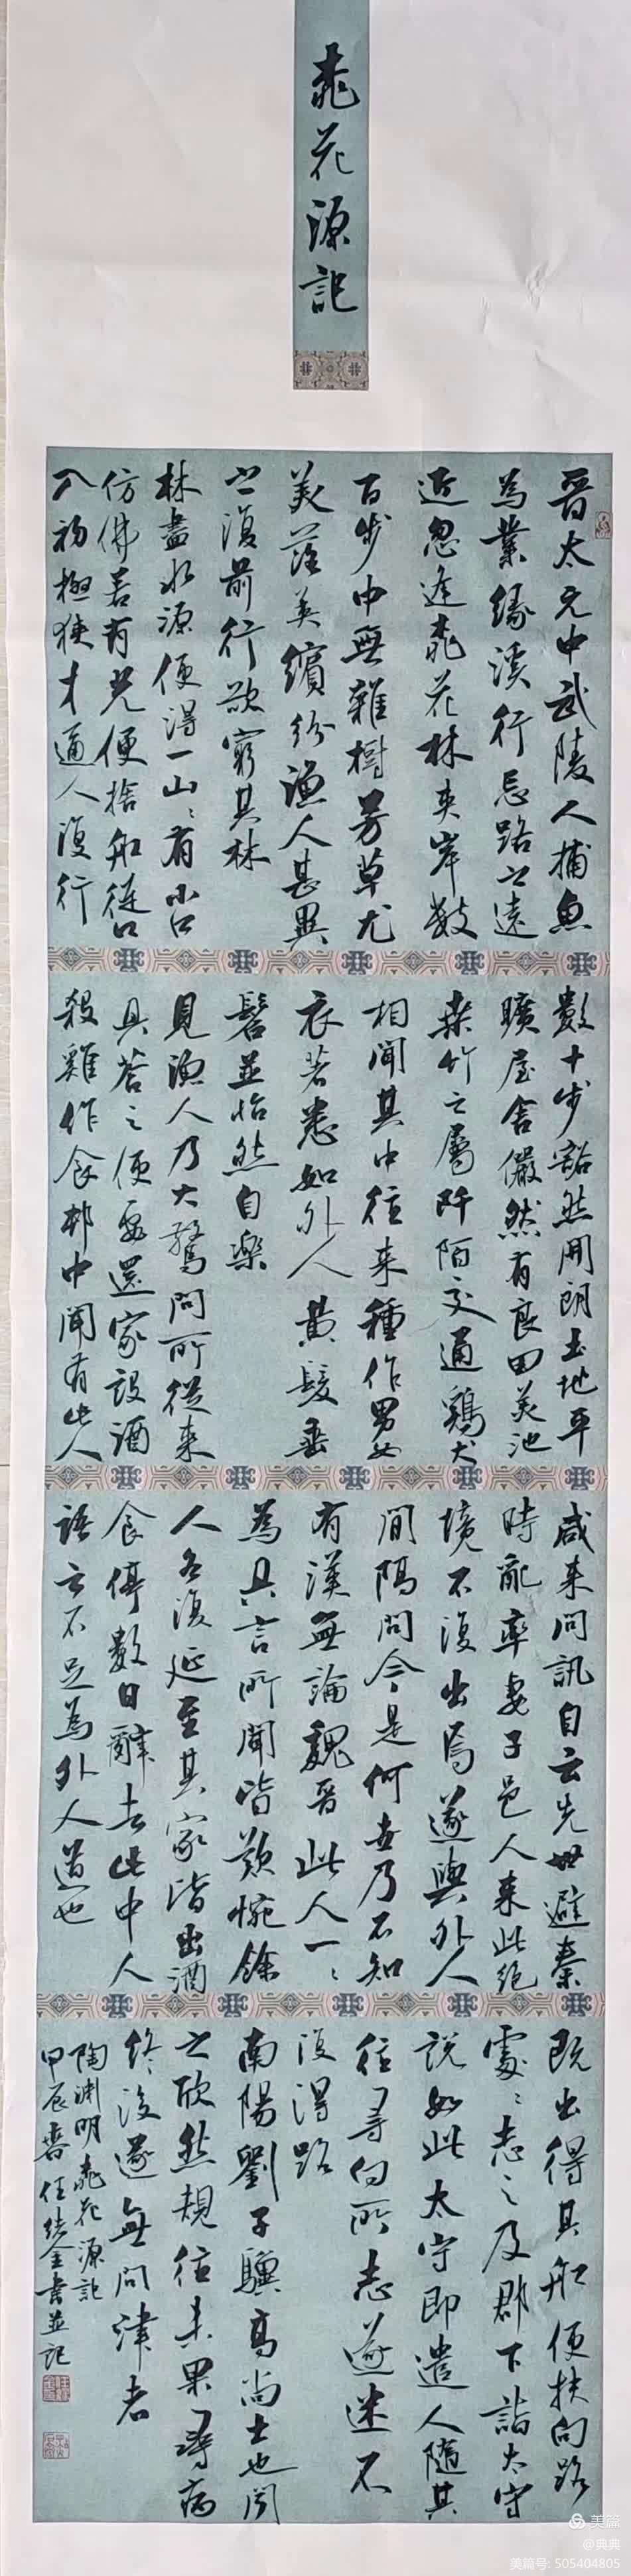 桃花源記
晋太元中武陵人捕魚
為業緣溪行忘路之遠
近忽逢桃花林夹岸數
百步中無雜樹芳草尤
美落英繽纷漁人甚異
之復前行欲窮其林
林盡水源便得一山〻有小口
仿佛若有光便捨船從口
入初極狭才通人復行
數十步豁然開朗土地平
曠屋舍儼然有良田美池
桑竹之屬阡陌交通鷄犬
相聞其中往来種作男女
衣著悉如外人 黄髮垂
髫並怡然自樂
見漁人乃大驚問所從来
具答之便要還家設酒
殺雞作食村中聞有此人
咸来問訊自云先世避秦
時亂率妻子邑人来此绝
境不復出焉遂與外人
間隔問今是何世乃不知
有漢無論魏晋此人一〻
為具言所聞皆歎惋餘
人各復延至其家皆出酒
食停數日辭去此中人
語云不足為外人道也
既出得其船便扶向路
處〻志之及郡下詣太守
說如此太守即遣人隨其
往尋向所志遂迷不
復得路
南陽劉子驥高尚士也聞
之欣然規往未果尋病
终後遂無問津者
陶渊明桃花源記
甲辰春任結金書並記
美篇
@典典
美篇号: 505404805